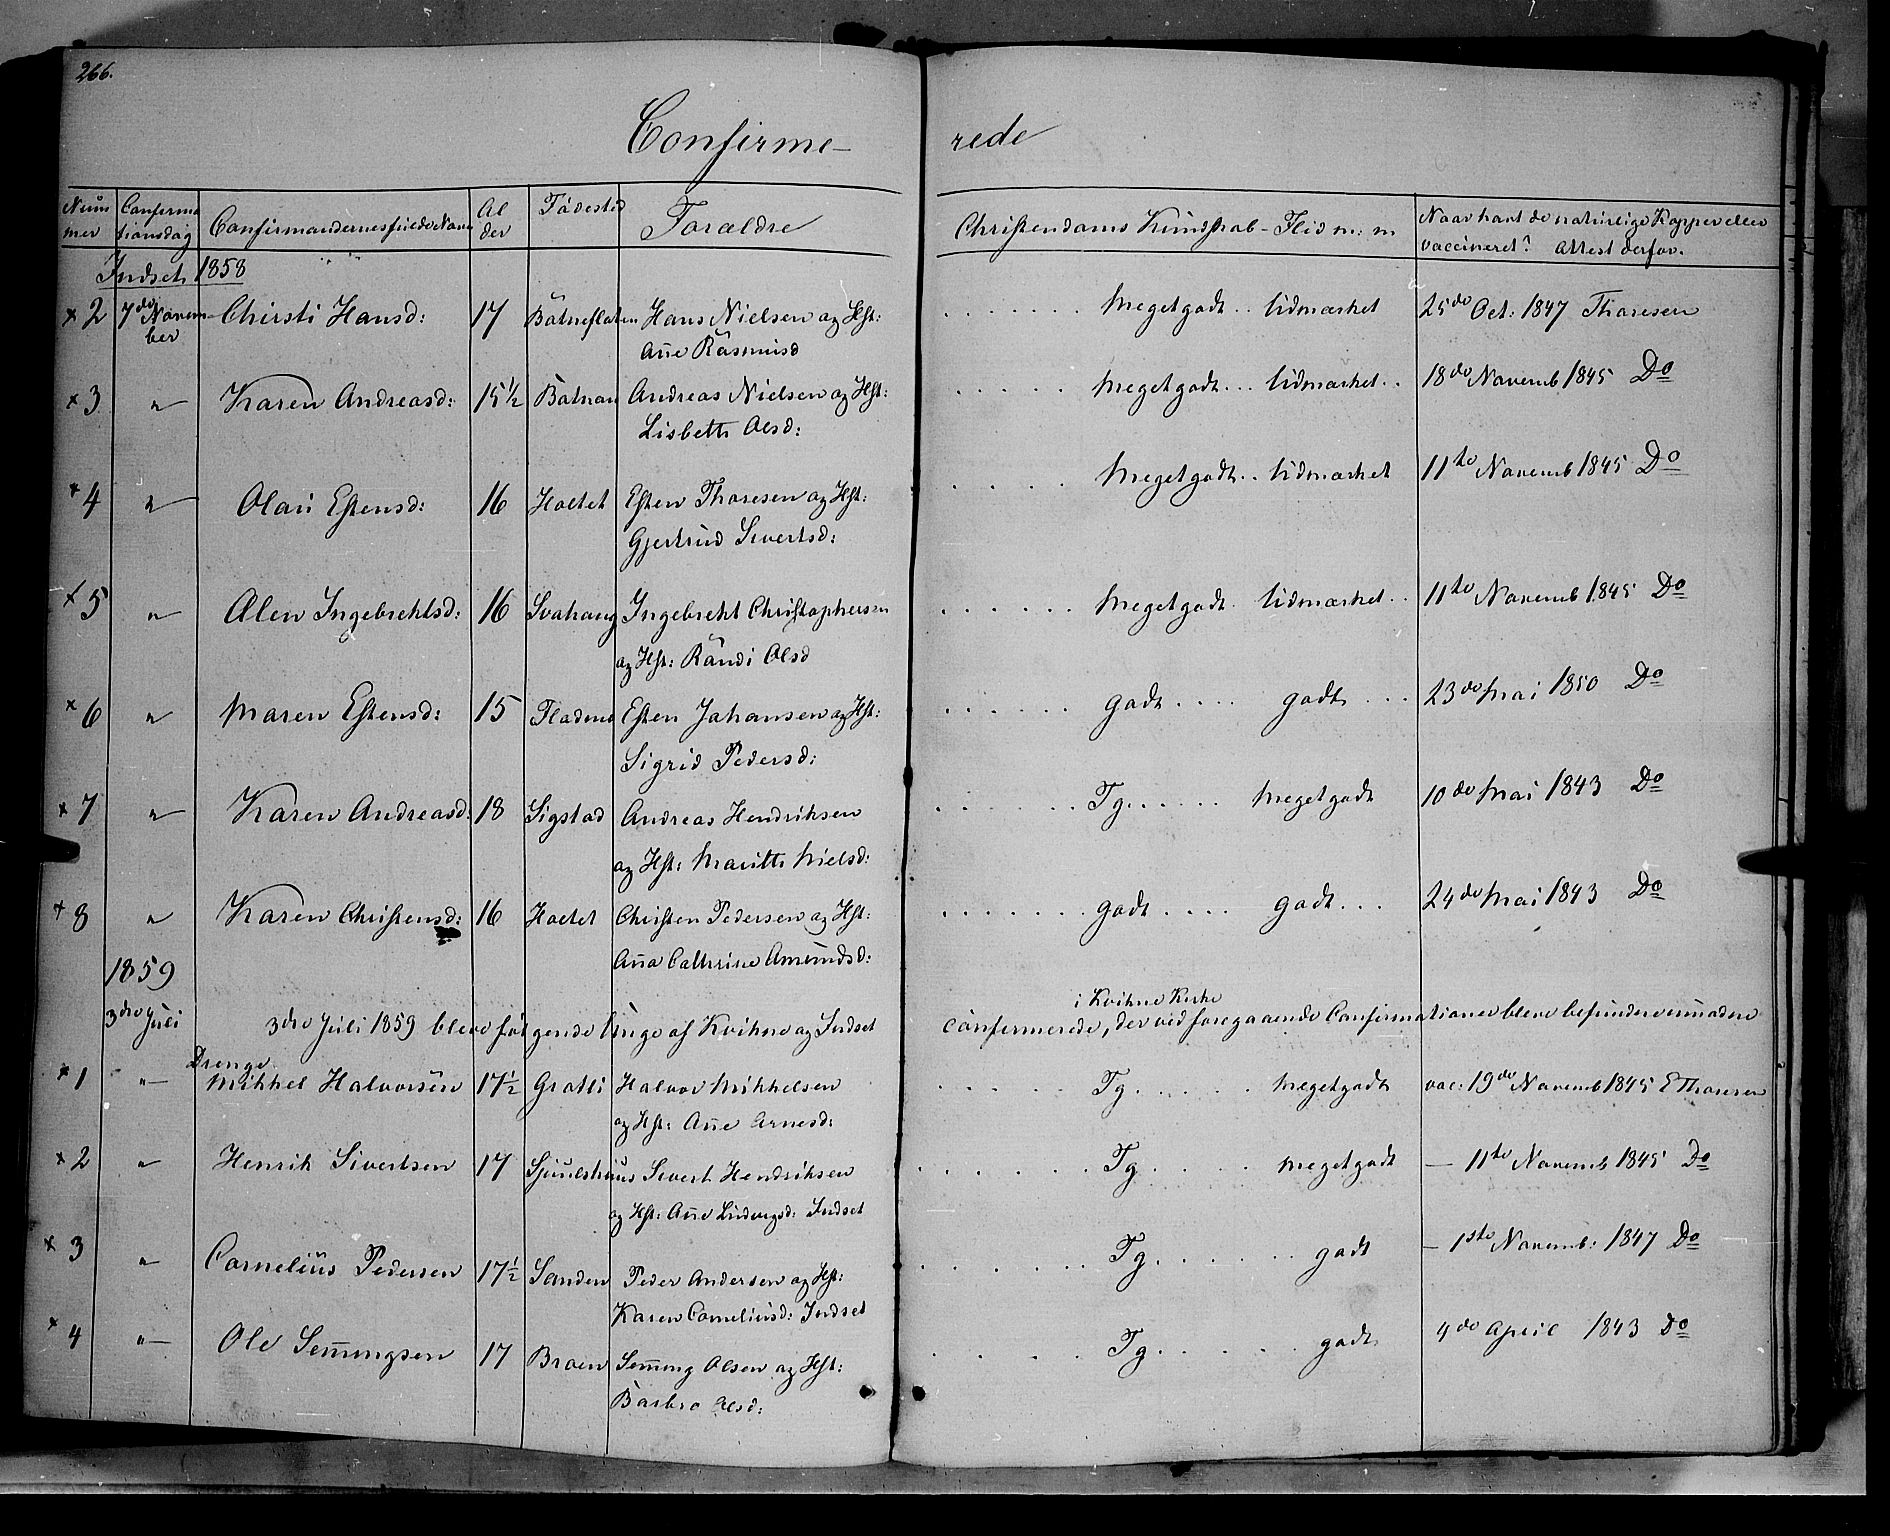 266.
Confirme- rede
Num mer | Confirma tionsdag | Confirmandernes fulde Navn | Al der | Fødested | Forældre | Christendoms Kundskab - Flid m: m | Naar havt de naturlige Kopper eller vaccineret? Attest derfor.
Indset 1858
x 2 7de Novem- Chirsti Hansd: 17 Botneflaten Hans Nielsen og Hst: . . . . . . Meget godt . . Udmærket 25de Oct: 1847 Thoresen
ber Ane Rasmusd
x 3 " Karen Andreasd: 15½ Botnan Andreas Nielsen og Hst: . . . . . Meget godt . . Udmærket . . 18de Novemb 1845 Do
Lisbeth Olsd:
x 4 " Olau Estensd: 16 Holtet Esten Thoresen og Hst: . . . . Meget godt . . Udmærket 11te Novemb 1845 Do
Gjertrud Sivertsd:
x 5 " Olen Ingebrehtsd: 16 Svahaug Ingebreht Christophersen . . . . . . Meget godt . Udmærket . . 11te Novemb 1845 Do
og Hst: Randi Olsd
x 6 " Maren Estensd: 15 Fladmo Esten Johansen og Hst: . . . . . . godt . . . . godt . . . 23de Mai 1850 Do
Sigrid Pedersd:
x 7 " Karen Andreasd: 18 Sigstad Andreas Hendriksen . . . . . . Tg . . . . . . Meget godt 10de Mai 1843 Do
og Hst: Marith Nielsd:
x 8 " Karen Christensd: 16 Holtet Christen Pedersen og Hst: . . . . . . . godt . . . . godt . . . 24de Mai 1843 Do
Ana Cathrine Amundsd:
1859
3die Juli 3die Juli 1859 bleve følgende Unge af Kvikne og Indset i Kvikne Kirke confirmerede, der ved foregaaende Confirmationer bleve befundne umodne
Drenge
x 1 " Mikkel Halvorsen 17½ Grotli Halvor Mikkelsen . . . . Tg . . . . . Meget godt vac: 19de Novemb 1845 E Thoresen
og Hst: Ane Arnesd:
x 2 " Henrik Sivertsen 17 Sjuulshuus Sivert Hendriksen . . . . . . Tg . . . . Meget godt — 11te Novemb 1845 Do
og Hst: Ane Ludvigsd: Indset
x 3 " Cornelius Pedersen 17½ Sanden Peder Andersen og Hst: . . . . . . Tg . . . . . . godt — 1ste Novemb: 1847 Do
Karen Corneliusd: Indset
x 4 " Ole Semmingsen 17 Broen Semming Olsen og Hst: . . . . Tg . . . . . . godt 4de April 1843 Do
Barbro Olsd: